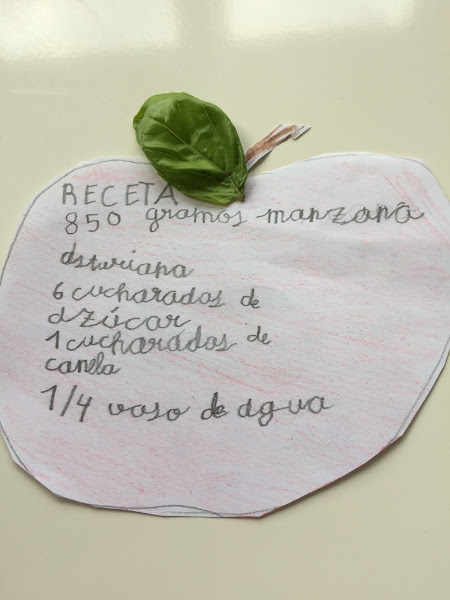 RECETA
850 gramos manzana
asturiana
6 cucharadas de
azúcar
1 cucharadas de
canela
1/4 vaso de agua